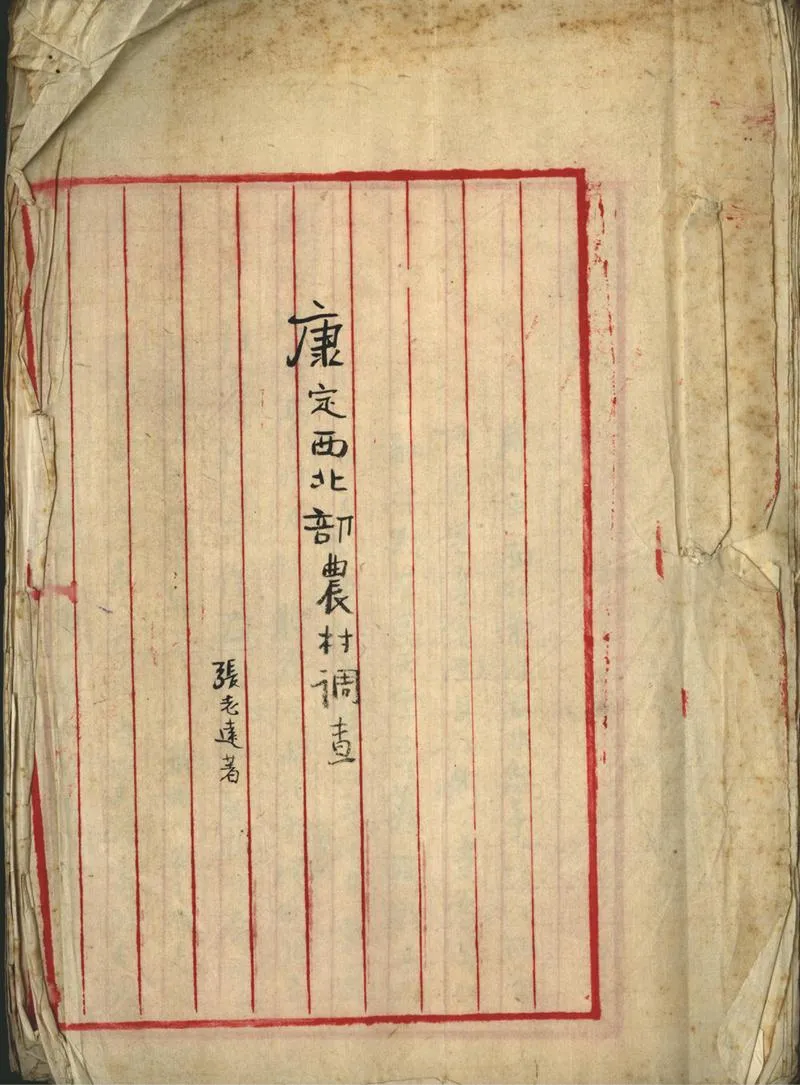 康定西北部農村調查
張志遠著